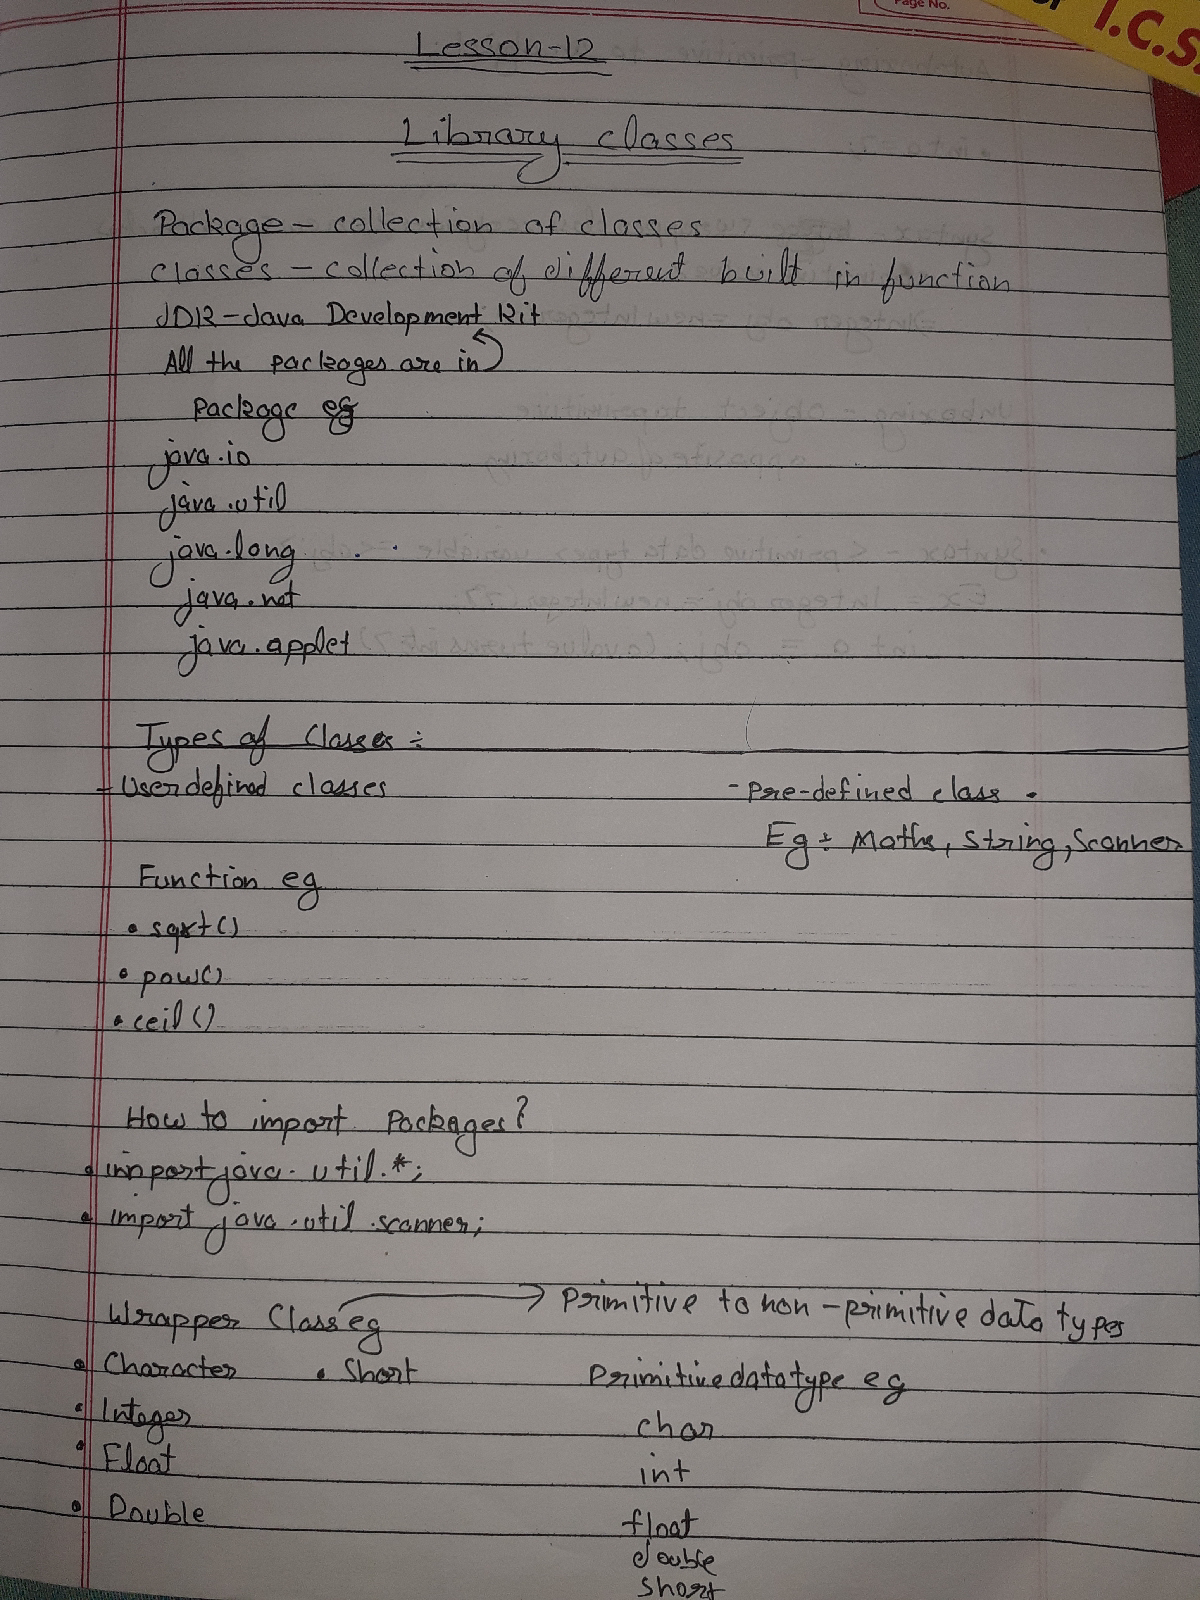 Page No.
I.C.S.
Lesson-12
Library classes
Package - collection of classes
classes - collection of different built in function
JDK - Java Development Kit
All the packages are in
Package eg
java.io
java.util
java.lang
java.net
java.applet
Types of Classes ÷
- User defined classes
- Pre-defined class
Eg ÷ Maths, String, Scanner
Function eg
• sqrt()
• pow()
• ceil()
How to import Packages?
• import java.util.*;
• import java.util.scanner;
Wrapper Class eg → Primitive to non-primitive data types
• Character • Short Primitive datatype eg
• Integer char
• Float int
• Double float
double
short